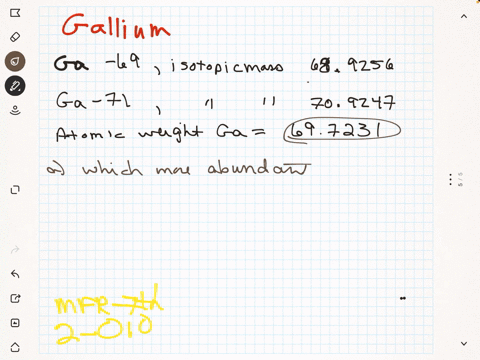 Gallium
Ga -69, isotopic mass 68.9256
Ga-71, " " 70.9247
Atomic weight Ga = 69.7231
a) which more abundant
MFR 7th
2-010
5/5